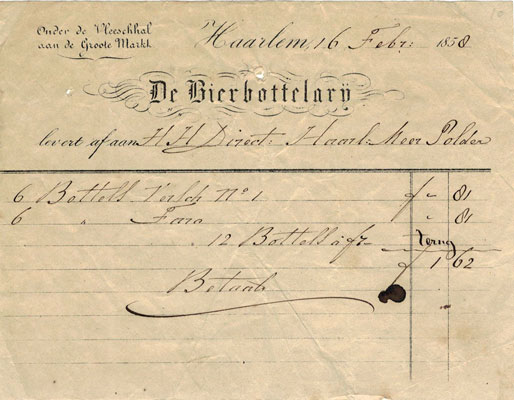 Onder de Vleeschhal
aan de Groote Markt.
Haarlem, 16 Febr: 1858
De Bierbottelarij
levert af aan H H Direct: Haarl: Meer Polder
6 Bottells No 1 f " 81
6 " Faro " 81
12 Bottells à f terug
f 1 62
Betaald